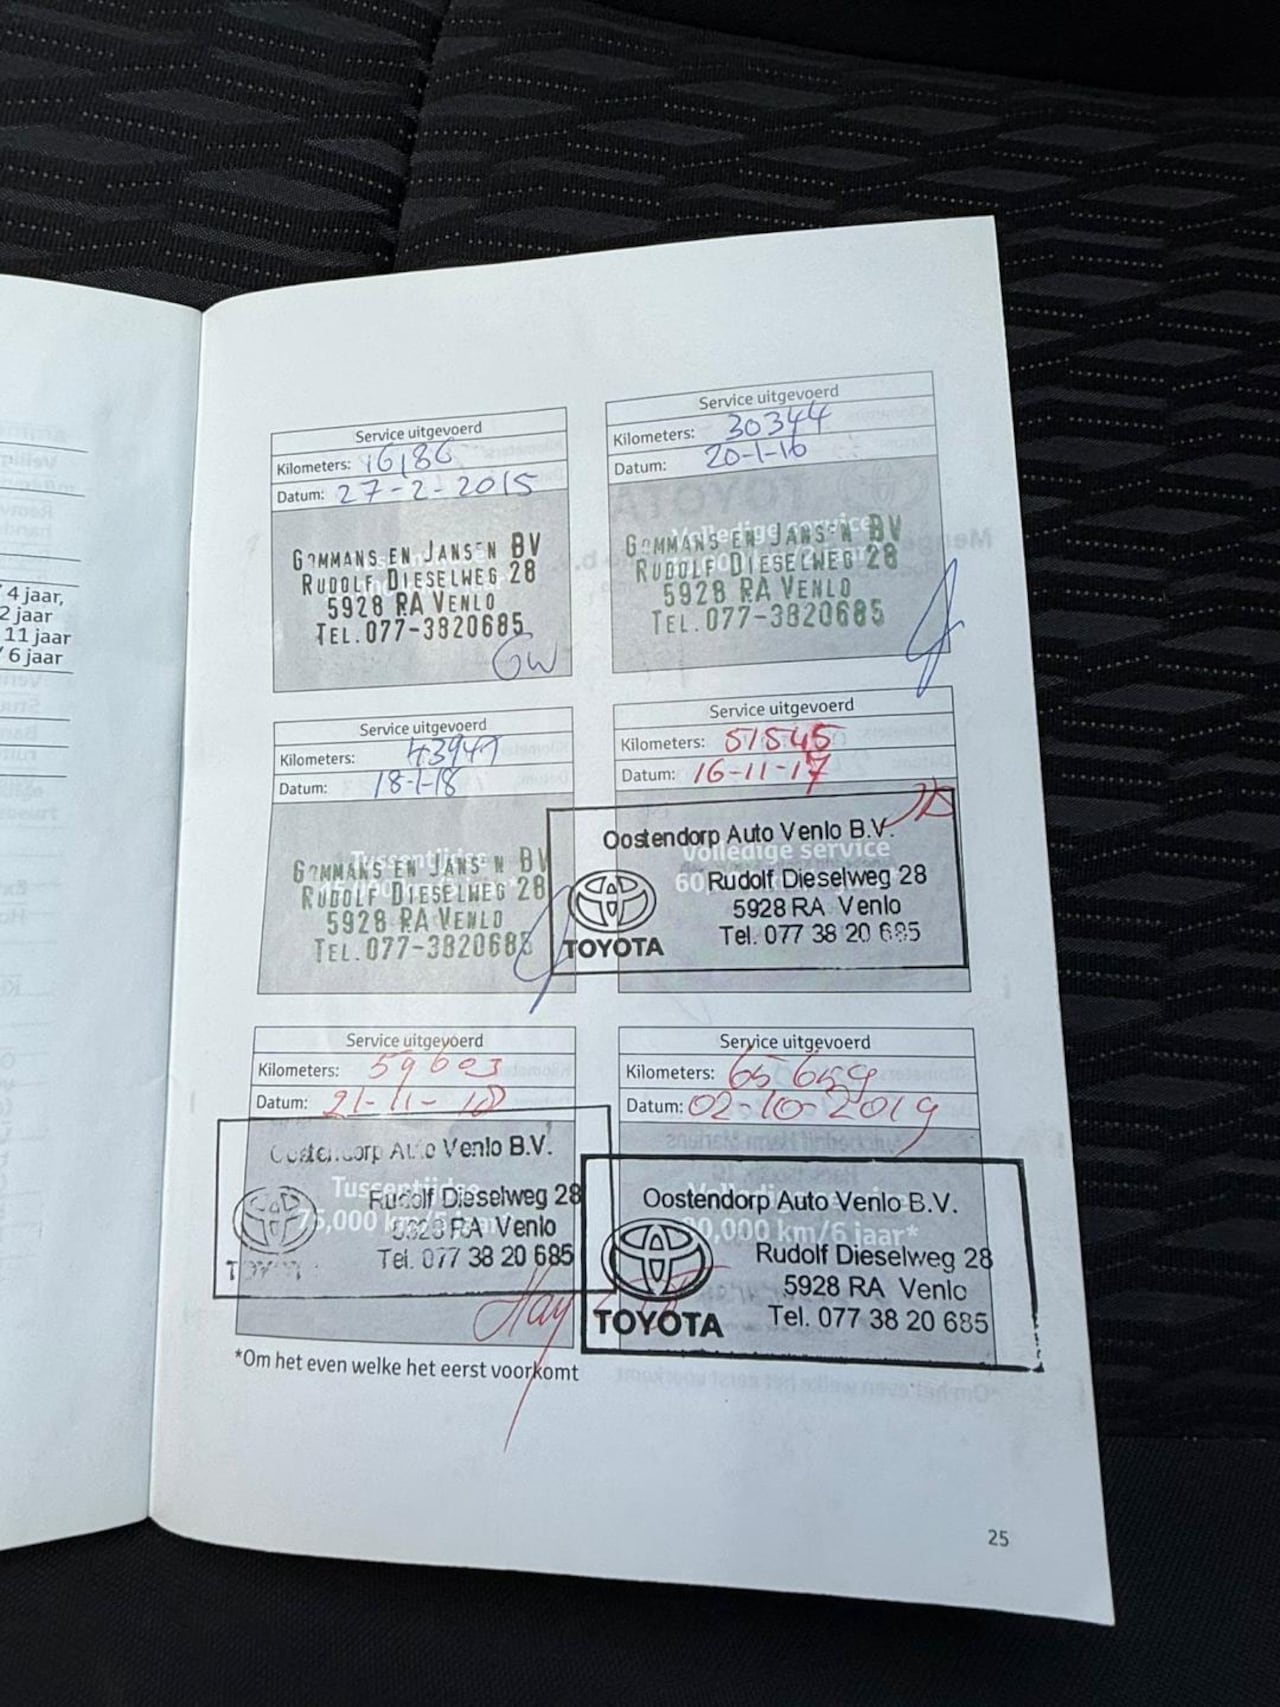 4 jaar,
2 jaar
11 jaar
6 jaar
Service uitgevoerd
Kilometers: 16186
Datum: 27-2-2015
GOMMANS EN JANSEN BV
RUDOLF DIESELWEG 28
5928 RA VENLO
TEL.077-3820685
GW
Service uitgevoerd
Kilometers: 30344
Datum: 20-1-16
Volledige service
GOMMANS EN JANSEN BV
RUDOLF DIESELWEG 28
5928 RA VENLO
TEL.077-3820685
Service uitgevoerd
Kilometers: 43947
Datum: 18-1-18
Tussentijdse
GOMMANS EN JANSEN BV
RUDOLF DIESELWEG 28
5928 RA VENLO
TEL.077-3820685
Service uitgevoerd
Kilometers: 51545
Datum: 16-11-17
Oostendorp Auto Venlo B.V.
Volledige service
Rudolf Dieselweg 28
5928 RA Venlo
Tel. 077 38 20 685
TOYOTA
Service uitgevoerd
Kilometers: 59603
Datum: 21-11-18
Oostendorp Auto Venlo B.V.
Tussentijdse
Rudolf Dieselweg 28
75,000 km/5 jaar*
5928 RA Venlo
Tel. 077 38 20 685
TOYOTA
Service uitgevoerd
Kilometers: 65659
Datum: 02-10-2019
Volledige service
Oostendorp Auto Venlo B.V.
90,000 km/6 jaar*
Rudolf Dieselweg 28
5928 RA Venlo
Tel. 077 38 20 685
TOYOTA
*Om het even welke het eerst voorkomt
25